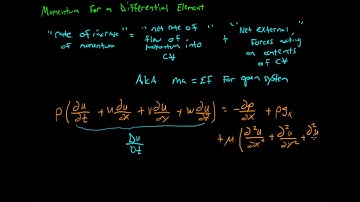 Momentum For a Differential Element
"rate of increase of momentum" = "net rate of flow of momentum into CV" + "Net external Forces acting on contents of CV"
AKA ma = ΣF for open system
ρ(∂u/∂t + u∂u/∂x + v∂u/∂y + w∂u/∂z) = -∂p/∂x + ρgₓ
+ μ(∂²u/∂x² + ∂²u/∂y² + ∂²u
Du/Dt